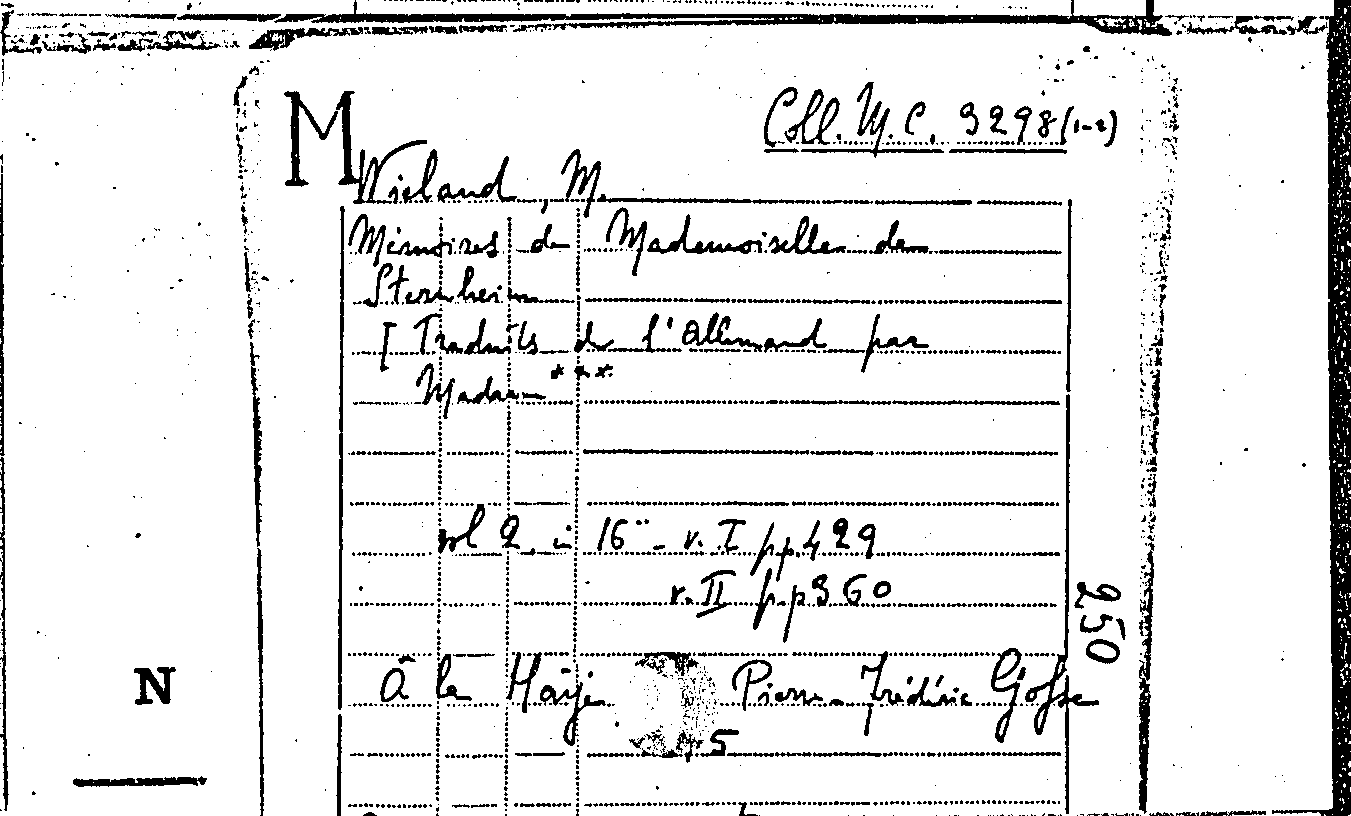 M
Coll. M. C. 3298 (1-2)
Wieland, M.
Mémoires de Mademoiselle de
Sternheim
[ Traduits de l'Allemand par
Madame ***
vol 2. in 16° - v. I pp. 429
v. II pp 360
250
N
À la Haÿe Pierre Frédéric Gosse
5